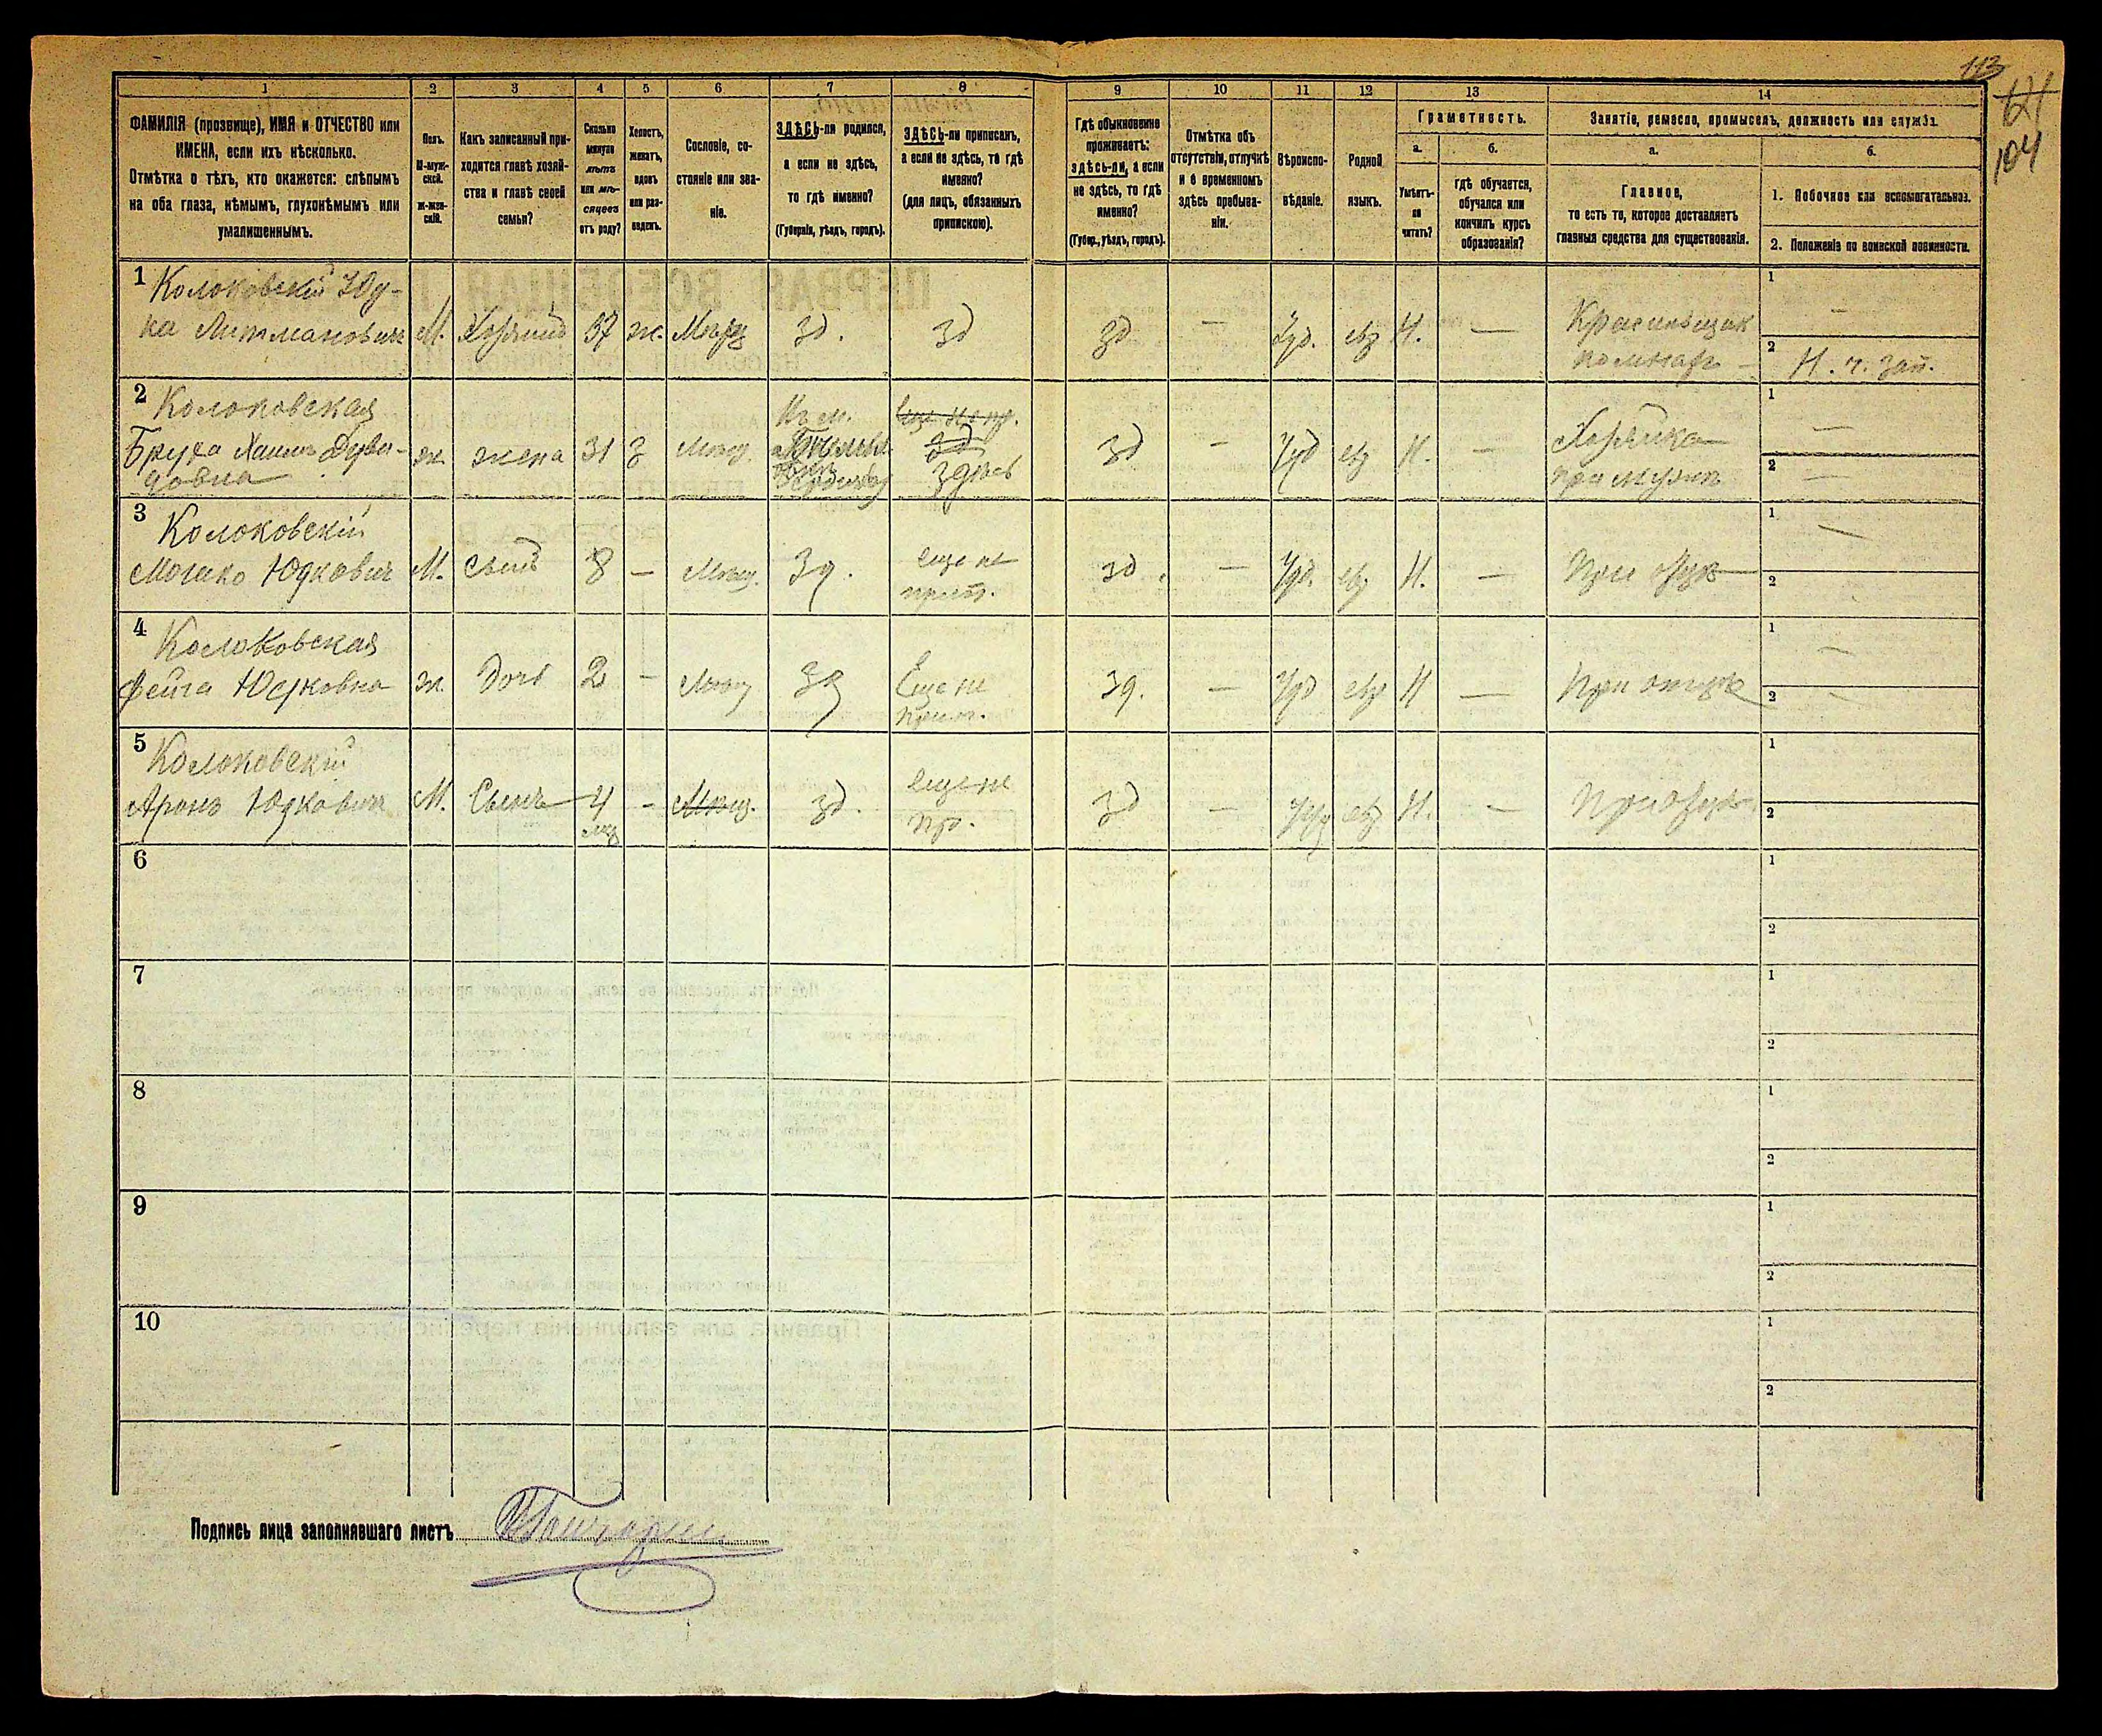 113
104
1 2 3 4 5 6 7 8 9 10 11 12 13 14
ФАМИЛІЯ (прозвище), ИМЯ и ОТЧЕСТВО или
ИМЕНА, если ихъ нѣсколько.
Отмѣтка о тѣхъ, кто окажется: слѣпымъ
на оба глаза, нѣмымъ, глухонѣмымъ или
умалишеннымъ.
Полъ.
М-муж-
ской.
ж-жен-
скій.
Какъ записанный при-
ходится главѣ хозяй-
ства и главѣ своей
семьи?
Сколько
минуло
лѣтъ
или мѣ-
сяцевъ
отъ роду?
Холостъ,
женатъ,
вдовъ
или раз-
веденъ.
Сословіе, со-
стояніе или зва-
ніе.
ЗДѢСЬ-ли родился,
а если не здѣсь,
то гдѣ именно?
(Губернія, уѣздъ, городъ).
ЗДѢСЬ-ли приписанъ,
а если не здѣсь, то гдѣ
именно?
(для лицъ, обязанныхъ
припискою).
Гдѣ обыкновенно
проживаетъ:
здѣсь-ли, а если
не здѣсь, то гдѣ
именно?
(Губер., уѣздъ, городъ).
Отмѣтка объ
отсутствіи, отлучкѣ
и о временномъ
здѣсь пребыва-
ніи.
Вѣроиспо-
вѣданіе.
Родной
языкъ.
Грамотность.
а. б.
Умѣетъ-
ли
читать?
гдѣ обучается,
обучался или
кончилъ курсъ
образованія?
Занятіе, ремесло, промыселъ, должность или служба.
а. б.
Главное,
то есть то, которое доставляетъ
главныя средства для существованія.
1. Побочное или вспомогательное.
2. Положеніе по воинской повинности.
1 Колоковскій Юд-
ка Литманович М. Хозяинъ 37 ж. Мещ зд. зд зд — Іуд. евр Н. — Красильщик
1 —
2 Н. ч. зап.
2 Колоковская
Бруха Хаимъ Дуви-
довна ж жена 31 з Мещ. здѣсь зд — Іуд евр Н. — Хозяйка
при мужѣ
1 —
2 —
3 Колоковскій
Мошко Юдкович М. сынъ 8 — Мещ. зд. еще не
прип. зд. — Іуд. евр Н. —
1 —
2
4 Колоковская
Фейга Юдковна ж. Дочь 2 — Мещ зд Еще не
прип. зд. — Іуд евр Н — При отце
1 —
2 —
5 Колоковскій
Аронъ Юдкович М. Сынъ 4
мес — Мещ. зд. еще не
пр. зд — Іуд евр Н. —
1
2
6 1
2
7 1
2
8 1
2
9 1
2
10 1
2
Подпись лица заполнявшаго листъ